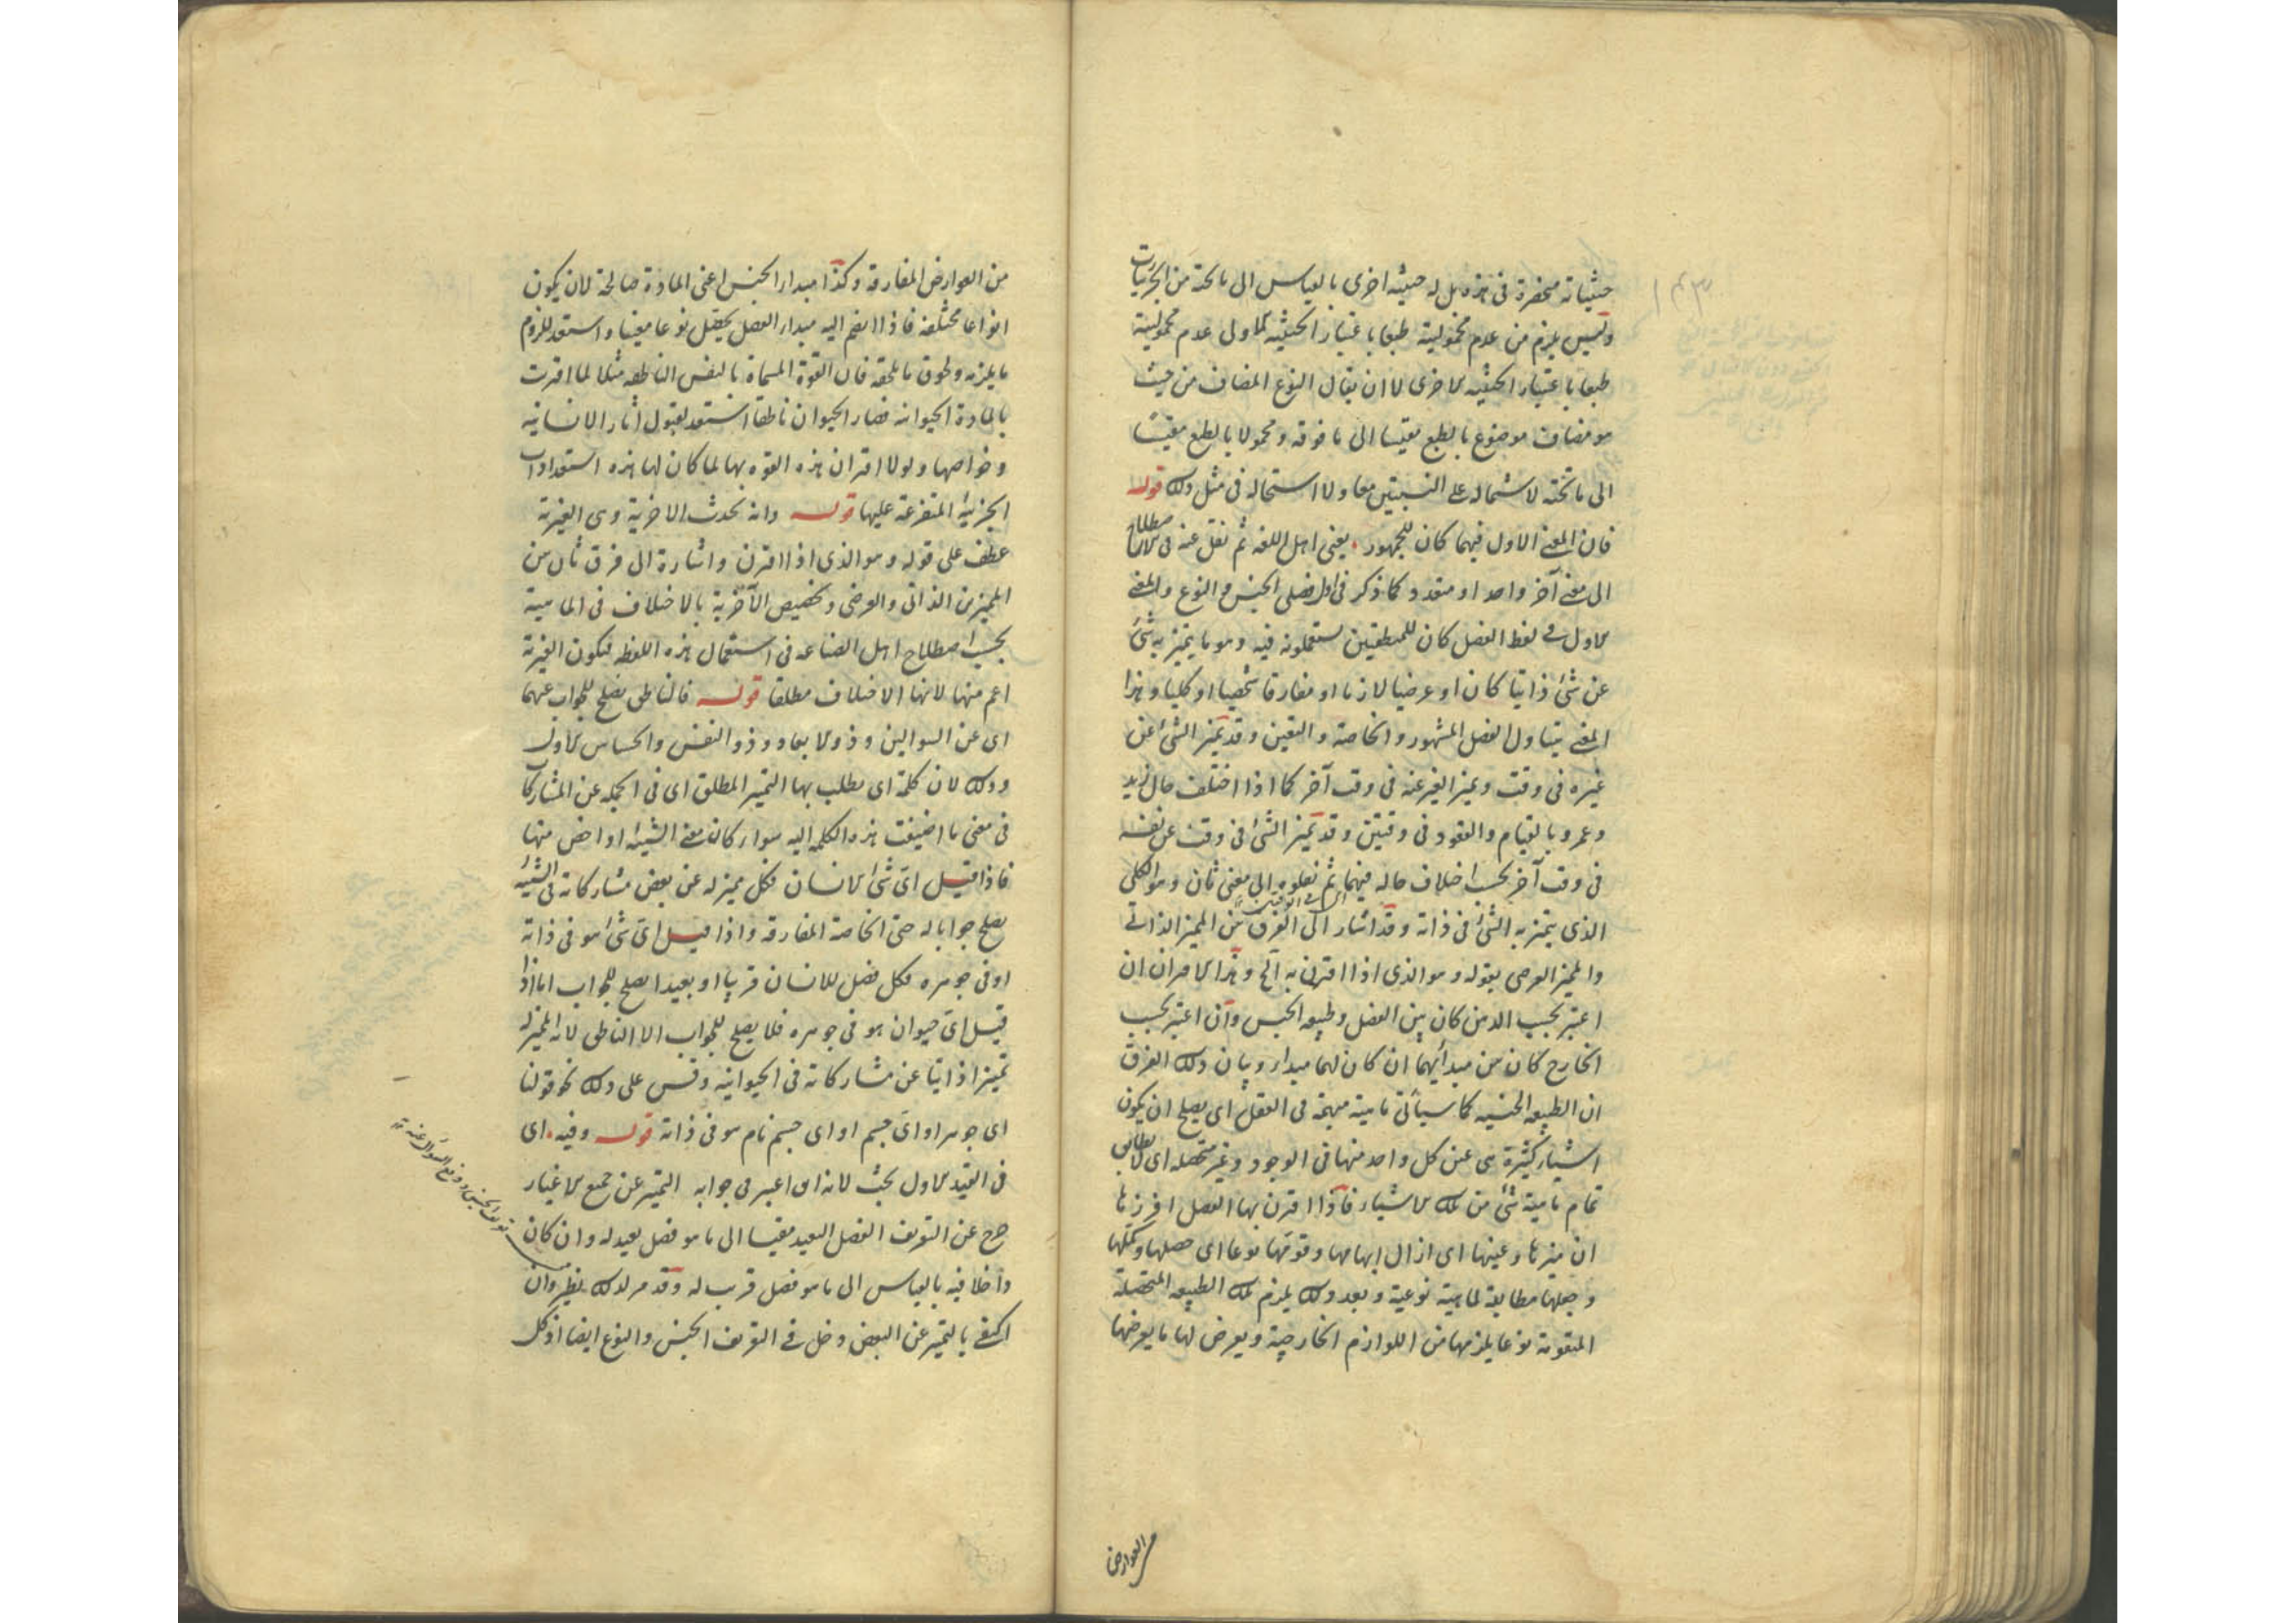 حيثياته منحصرة فى هذه بل له حيثية اخرى بالقياس الى ما تحته من الجزئيات
وليس يلزم من عدم محمولية طبعا باعتبار الحيثية الاولى عدم محمولية
طبعا باعتبار الحيثية الاخرى لا ان يقال النوع المضاف من حيث
هو مضاف موضوع بالطبع مقيسا الى ما فوقه ومحمولا بالطبع مقيسا
الى ما تحته لاشتماله على النسبتين معا ولا استحالة فى مثل ذلك قوله
فان المعنى الاول فيهما كان للجمهور يعنى اهل اللغة ثم نقل عنه فى الاصطلاح
الى معنى آخر واحد او متعدد كما ذكر فى اول فصلى الجنس والنوع والمعنى
الاول فى لفظ الفصل كان للمنطقيين يستعملونه فيه وهو ما يتميز به شئ
عن شئ ذاتيا كان او عرضيا لازما او مفارقا شخصيا او كليا وهذا
المعنى يتناول الفصل المشهور والخاصة والتعين وقد يميز الشئ عن
غيره فى وقت ويميز الغير عنه فى وقت آخر كما اذا اختلف حال زيد
وعمرو بالقيام والقعود فى وقتين وقد يميز الشئ فى وقت عن نفسه
فى وقت آخر بحسب اختلاف حاله فيهما ثم نقلوه الى معنى ثان وهو الكلى
الذى يتميز به الشئ فى ذاته وقد اشار الى الفرق بين المميز الذاتى
والمميز العرضى بقوله وهو الذى اذا اقترن به آلخ وهذا الاقتران ان
اعتبر بحسب الذهن كان بين الفصل وطبيعة الجنس وان اعتبر بحسب
الخارج كان بين مبدأيهما ان كان لهما مبداء وبيان ذلك الفرق
ان الطبيعة الجنسية كما سيأتى ماهية مبهمة فى العقل اى يصلح ان يكون
اشياء كثيرة هى عين كل واحد منها فى الوجود وغير متحصلة اى لا يطابق
تمام ماهية شئ من تلك الاشياء فاذا اقترن بها الفصل افرزها
ان ميزها وعينها اى ازال ابهامها وقومها نوعا اى حصلها وكملها
وجعلها مطابقة لماهية نوعية وبعد ذلك يلزم تلك الطبيعة المتحصلة
المتقومة نوعا ما يلزمها من اللوازم الخارجية ويعرض لها ما يعرضها
من العوارض
من العوارض المفارقة وكذا مبداء الجنس اعنى المادة صالحة لان يكون
انواعا مختلفة فاذا انضم اليه مبداء الفصل يحصل نوعا معينا واستعد للزوم
ما يلزمه ولحوق ما يلحقه فان القوة المسماة بالنفس الناطقة مثلا لما اقترنت
بالمادة الحيوانية فصار الحيوان ناطقا استعد لقبول آثار الانسانية
وخواصها ولولا اقتران هذه القوة بها لما كان لها هذه استعدادات
الجزئية المتفرعة عليها قوله وانه يحدث الاخرية وهى الغيرية
عطف على قوله وهو الذى اذا اقترن واشارة الى فرق ثان بين
المميزين الذاتى والعرضى وتخصيص الآخرية بالاختلاف فى الماهية
بحسب اصطلاح اهل الصناعة فى استعمال هذه اللفظة فيكون الغيرية
اعم منها لانها الاختلاف مطلقا قوله فالناطق يصلح للجواب عنهما
اى عن السوالين وذو الابعاد وذو النفس والحساس للاول
وذلك لان كلمة اى يطلب بها التميز المطلق اى فى الجملة عن المشاركات
فى معنى ما اضيفت هذه الكلمة اليه سواء كان معنى الشيئية او اخص منها
فاذا قيل اى شئ الانسان فكل مميز له عن بعض مشاركاته فى الشيئية
يصلح جوابا له حتى الخاصة المفارقة واذا قيل اى شئ هو فى ذاته
او فى جوهره فكل فصل للانسان قريبا او بعيدا يصلح للجواب اما اذا
قيل اى حيوان هو فى جوهره فلا يصلح للجواب الا الناطق لانه المميز له
تميزا ذاتيا عن مشاركاته فى الحيوانية وقس على ذلك نحو قولنا
اى جوهر او اى جسم او اى جسم نام هو فى ذاته قوله وفيه اى
فى القيد الاول بحث لانه ان اعتبر فى جوابه التميز عن جميع الاغيار
خرج عن التعريف الفصل البعيد مقيسا الى ما هو فصل بعيد له وان كان
داخلا فيه بالقياس الى ما هو فصل قريب له وقد مر لذلك نظير وان
اكتفى بالتميز عن البعض دخل فى التعريف الجنس والنوع ايضا اذ كل